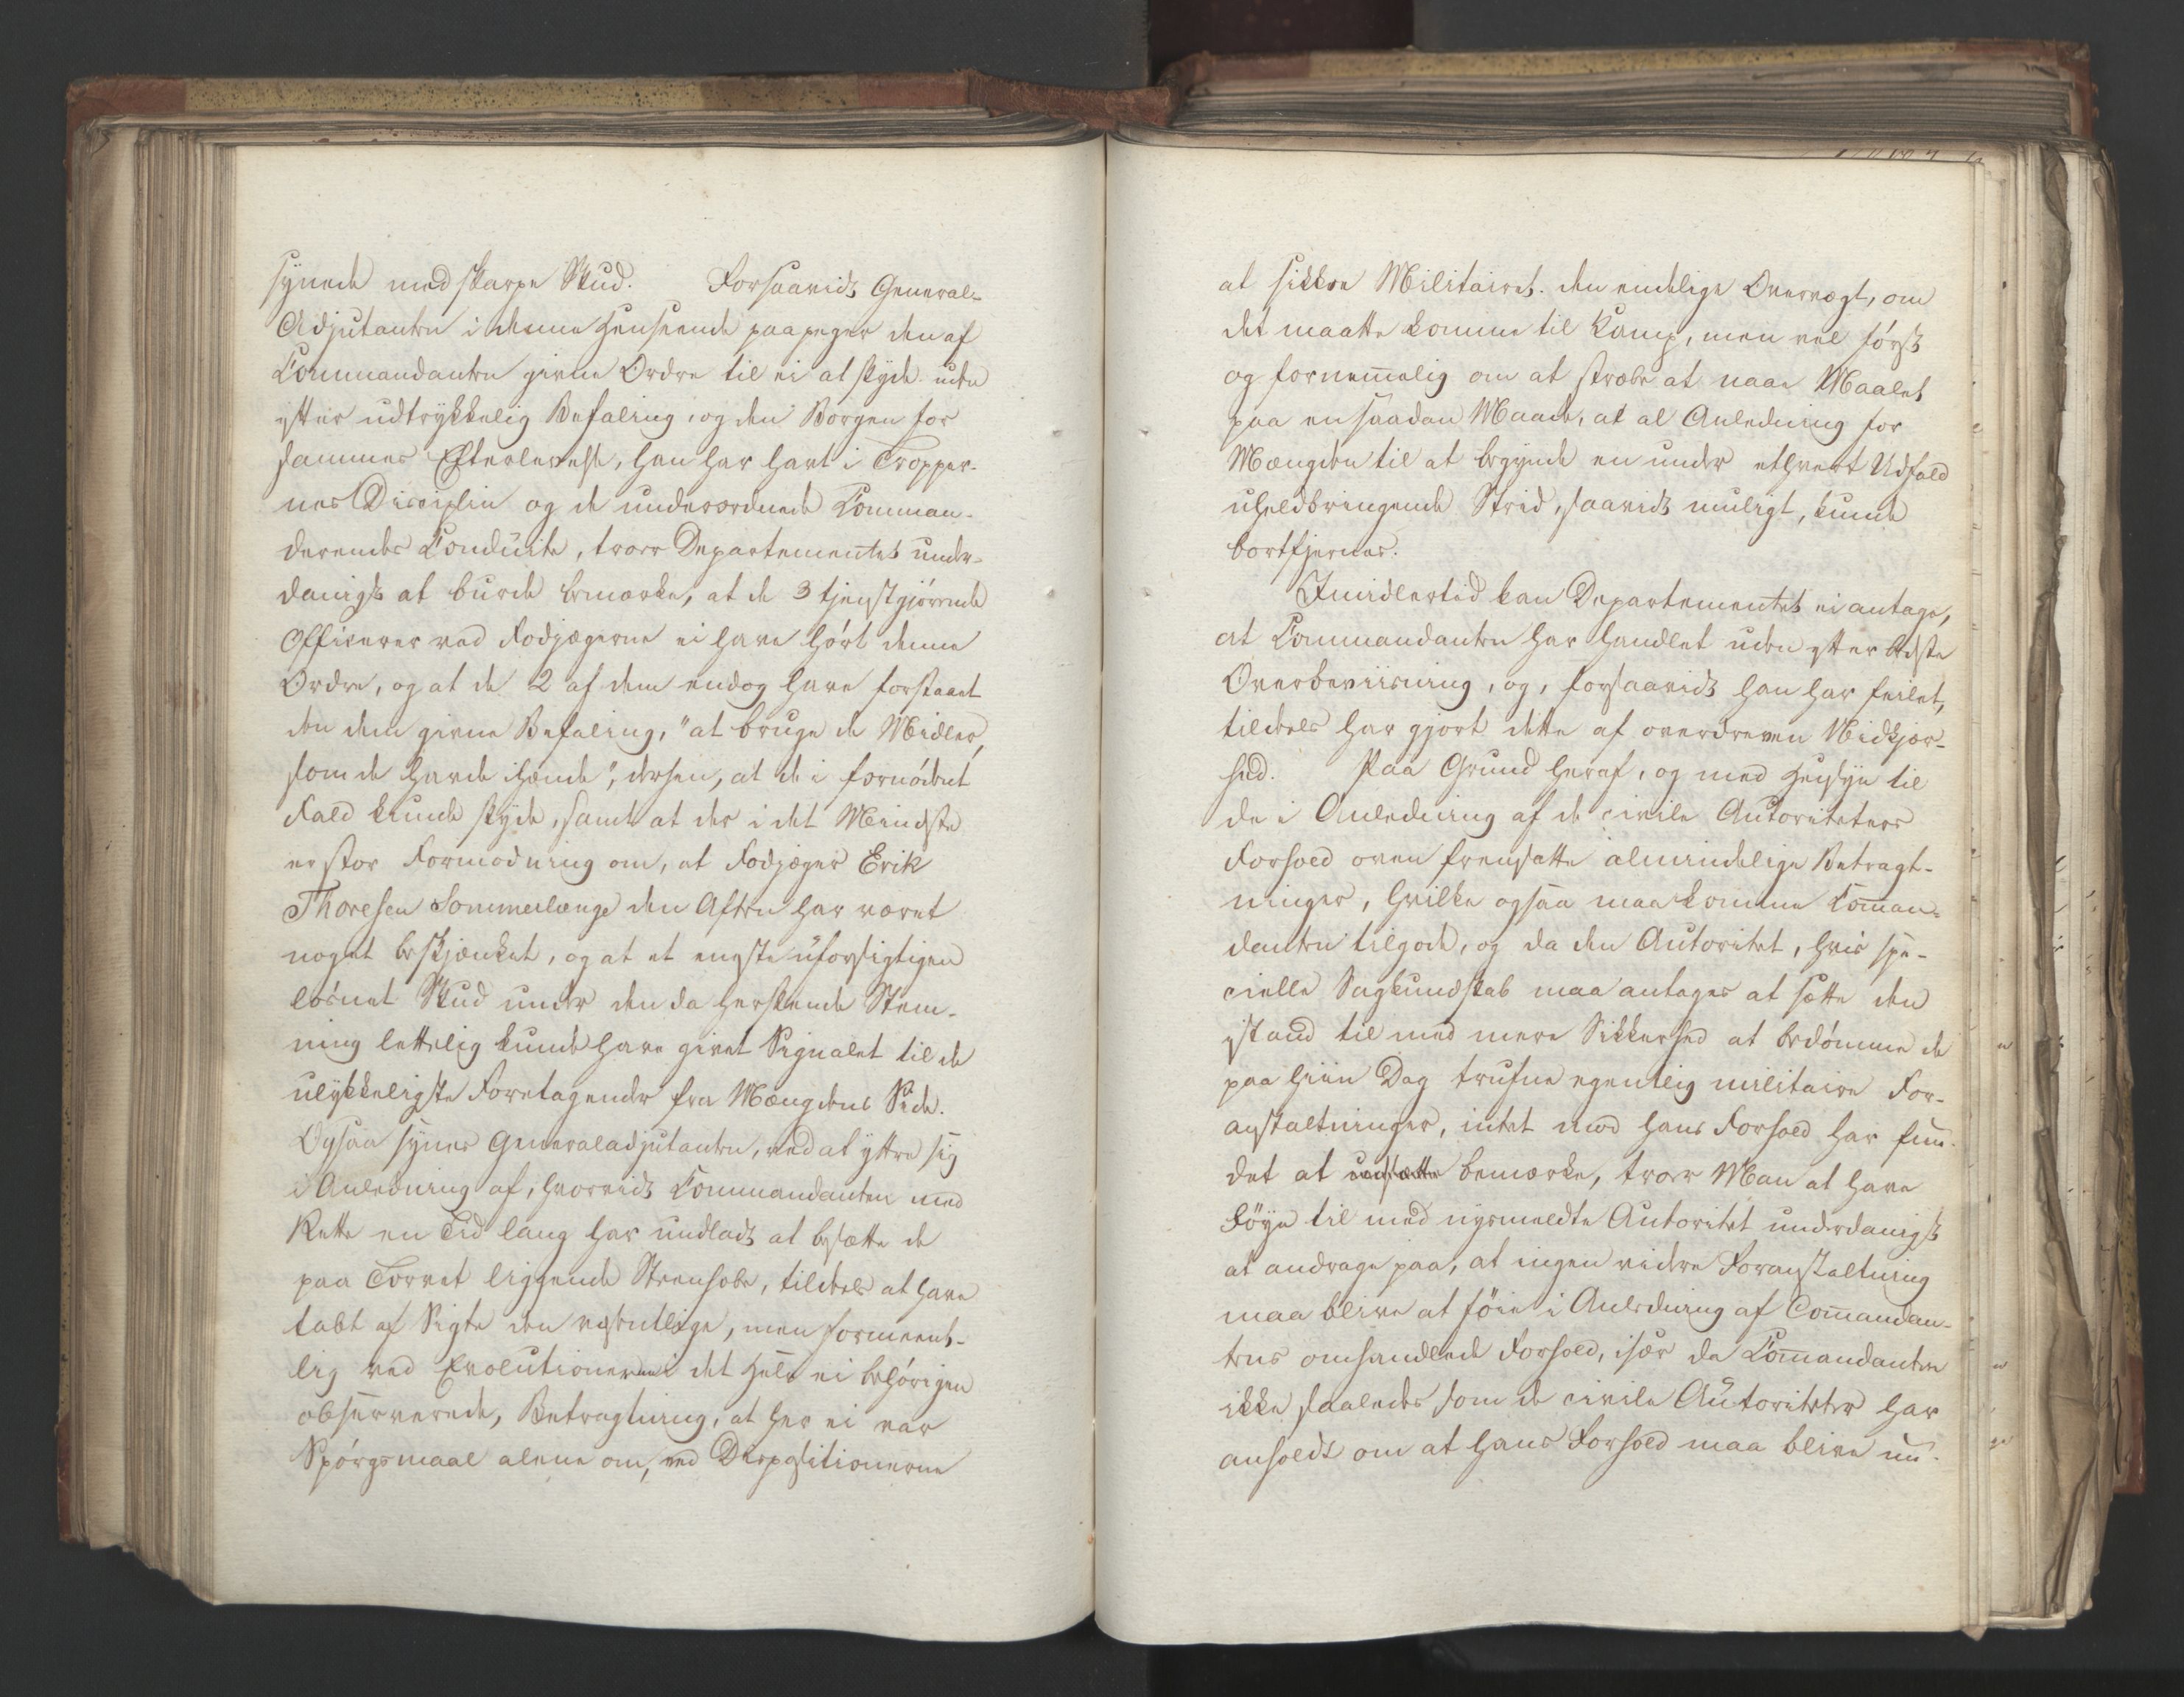 synede med skarpe Skud. Forsaavidt General-
Adjutanten i denne Henseende paapeger den af
Commandanten givne Ordre til ei at skyde uden
efter udtrykkelig Befaling, og den Borgen for
sammes Efterlevelse, han har havt i Tropper-
nes Disciplin og de underordnede Comman-
derendes Conduite, troer Departementet under-
danigst at burde bemærke, at de 3 tjenstgjørende
Officerer ved Fodjægerne ei have hørt denne
Ordre, og at de 2 af dem endog have forstaaet
den dem givne Befaling, "at bruge de Midler,
som de havde ihænde", derhen, at de i fornødent
Fald kunde skyde, samt at der i det Mindste
er stor Formodning om, at Fodjæger Erik
Thoresen Sommerlænge den Aften har været
noget beskjænket, og at et eneste uforsigtigen
løsnet Skud under den da herskende Stem-
ning lettelig kunde have givet Signalet til de
ulykkeligste Foretagender fra Mængdens Side.
Ogsaa synes Generaladjutanten, ved at yttre sig
i Anledning af, hvorvidt Commandanten med
Rette en Tid lang har undladt at besætte de
paa Torvet liggende Steenhobe, tildeels at have
tabt af Sigte den væsentlige, men formeent-
lig ved Evolutionerne i det Hele ei behørigen
observerede, Betragtning, at her ei var
Spørgsmaal alene om, ved Dispositionerne
at sikkre Militairet den endelige Overvægt, om
det maatte komme til Kamp, men vel først
og fornemmelig om at stræbe at naae Maalet
paa en saadan Maade, at al Anledning for
Mængden til at begynde en under ethvert Udfald
uheldbringende Strid, saavidt muligt, kunde
bortfjernes.
Imidlertid kan Departementet ei antage,
at Commandanten har handlet uden efter bedste
Overbeviisning, og, forsaavidt han har feilet,
tildeels har gjort dette af overdreven Nidkjær-
hed. Paa Grund heraf, og med Hensyn til
de i Anledning af de civile Autoriteters
Forhold oven fremsatte almindelige Betragt-
ninger, hvilke ogsaa maa komme Comman-
danten tilgode, og da den Autoritet, hvis spe-
cielle Sagkundskab maa antages at sætte den
istand til med mere Sikkerhed at bedømme de
paa hiin Dag trufne egentlig militaire For-
anstaltninger, intet mod hans Forhold har fun-
det at bemærke, troer Man at have
Föye til med nysmeldte Autoritet underdanigst
at andrage paa, at ingen videre Foranstaltning
maa blive at føie i Anledning af Commandan-
tens omhandlede Forhold, især da Commandanten
ikke saaledes som de civile Autoriteter har
anholdt om at hans Forhold maa blive un-